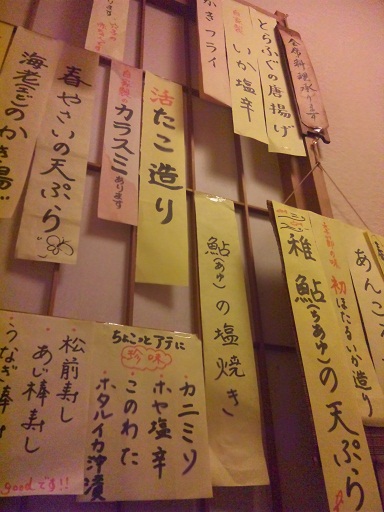 会席料理承ります
とらふぐの唐揚げ
自家製
いか塩辛
かきフライ
自家製の
カラスミあります
活たこ造り
春やさいの天ぷら
海老とごのかき揚げ
鮎(あゆ)の塩焼き
あんこ
季節の味
初ほたるいか造り
稚鮎(ちあゆ)の天ぷら
ちょこっとアテに
珍味
カニミソ
ホヤ塩辛
このわた
ホタルイカ沖漬
松前寿し
あじ棒寿し
うなぎ棒寿
goodです!!